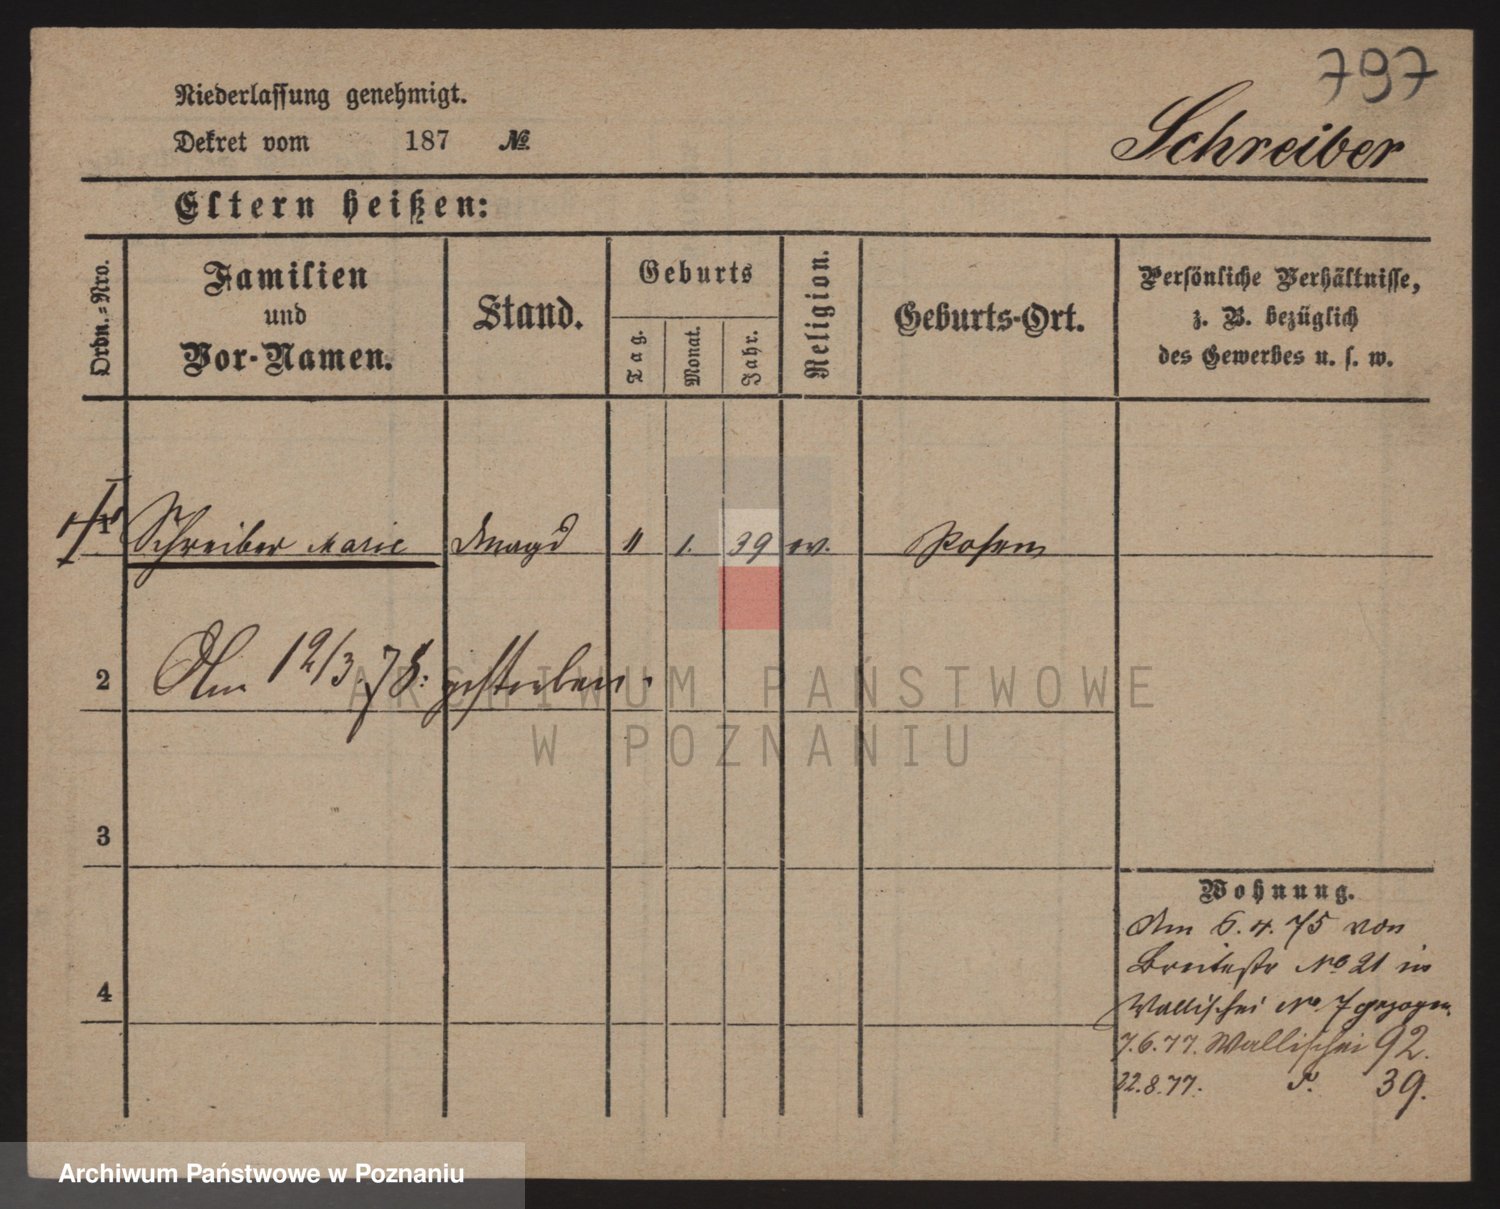 797
Niederlassung genehmigt.
Dekret vom 187 №
Schreiber
Eltern heißen:
Ordn.-Nro.
Familien und Vor-Namen.
Stand.
Geburts
Tag.
Monat.
Jahr.
Religion.
Geburts-Ort.
Persönliche Verhältnisse,
z. B. bezüglich
des Gewerbes u. s. w.
1 Schreiber Marie Magd " 1. 39 Posen
2 Am 12/3 78. gestorben.
3
4
Wohnung.
Am 6.4.75 von
Breitestr No 21 in
Wallischei No 7 gezogen.
7.6.77. Wallischei 92.
22.8.77. 39.
ARCHIWUM PAŃSTWOWE
W POZNANIU
Archiwum Państwowe w Poznaniu